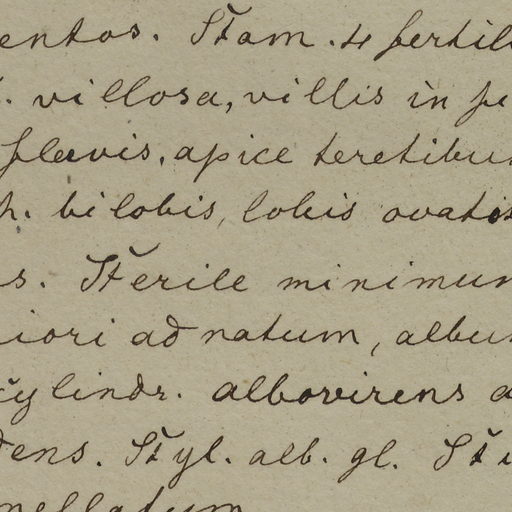 entos. Stam. 4 fertil
. villosa, villis in fe
flavis, apice teretibu
h. bilobis, lobis ovatis
s. Sterile minimum
iori adnatum, album
cylindr. albovirens a
dens. Styl. alb. gl. Sti
mellatum